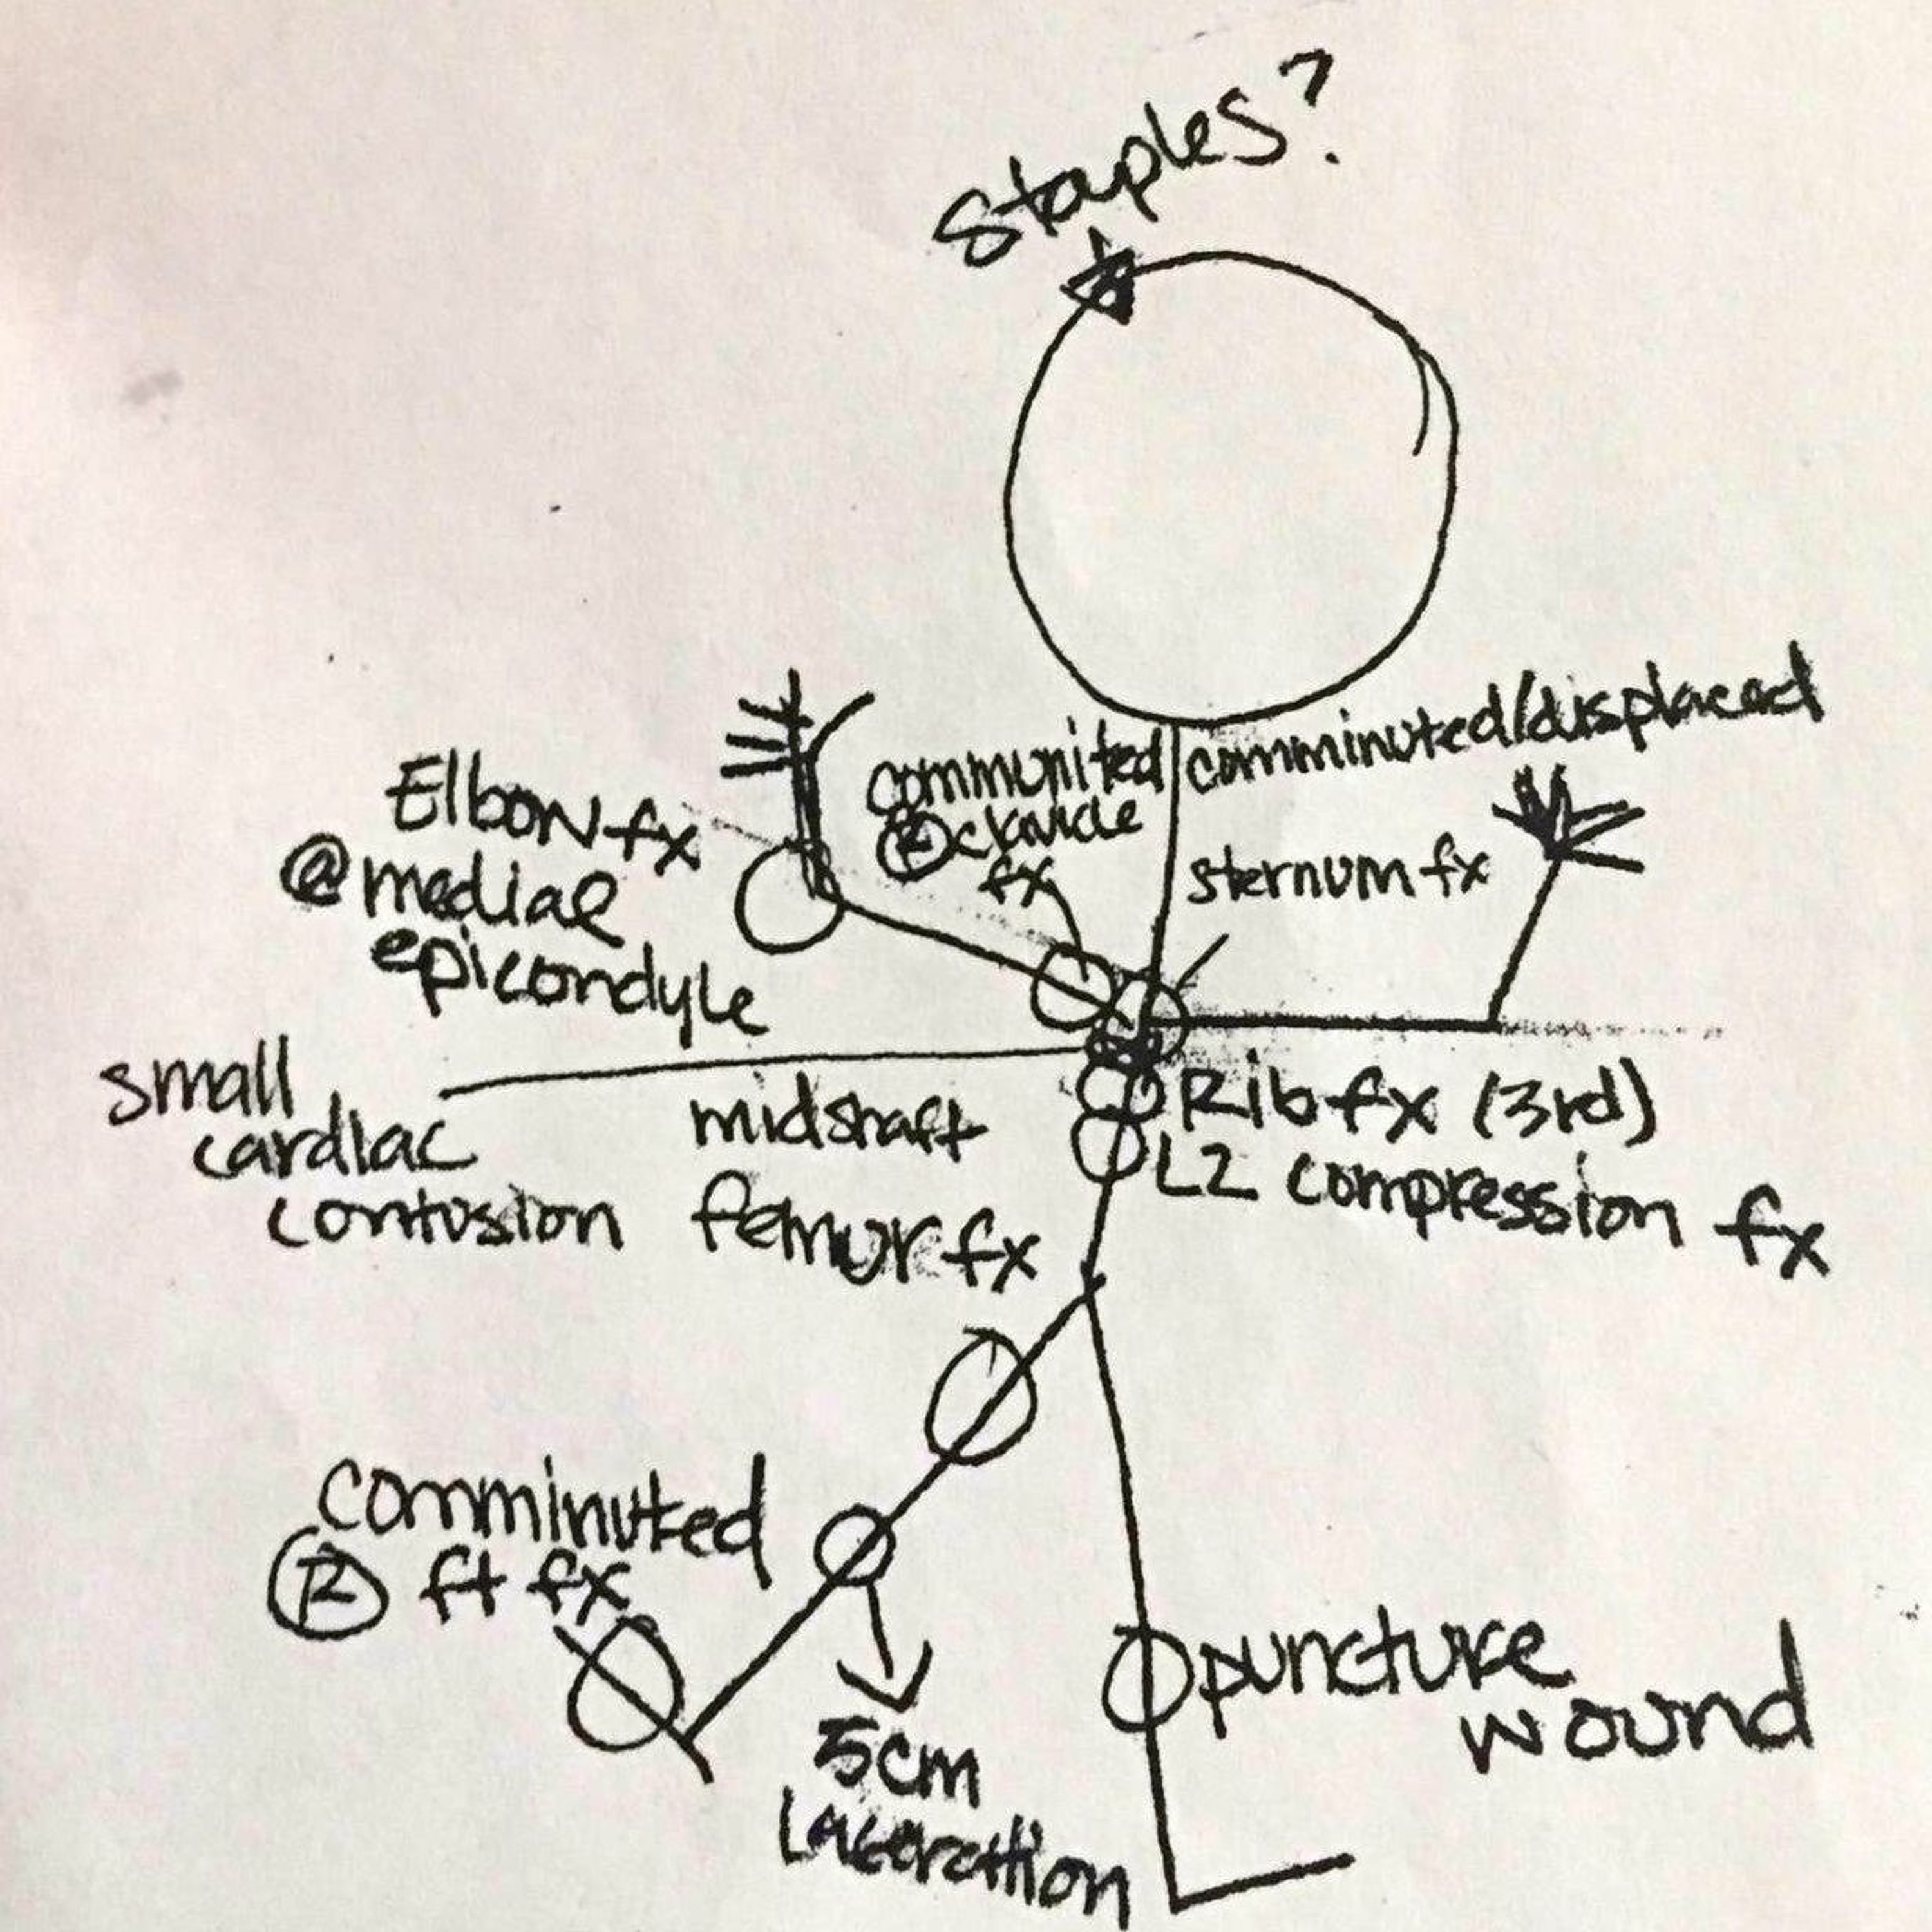 Staples?
communited
Ⓡ clavicle
fx
comminuted/displaced
sternum fx
Elbow fx
@ medial
epicondyle
small
cardiac
contusion
midshaft
femur fx
Rib fx (3rd)
L2 compression fx
comminuted
Ⓡ ft fx
5cm
laceration
puncture
wound